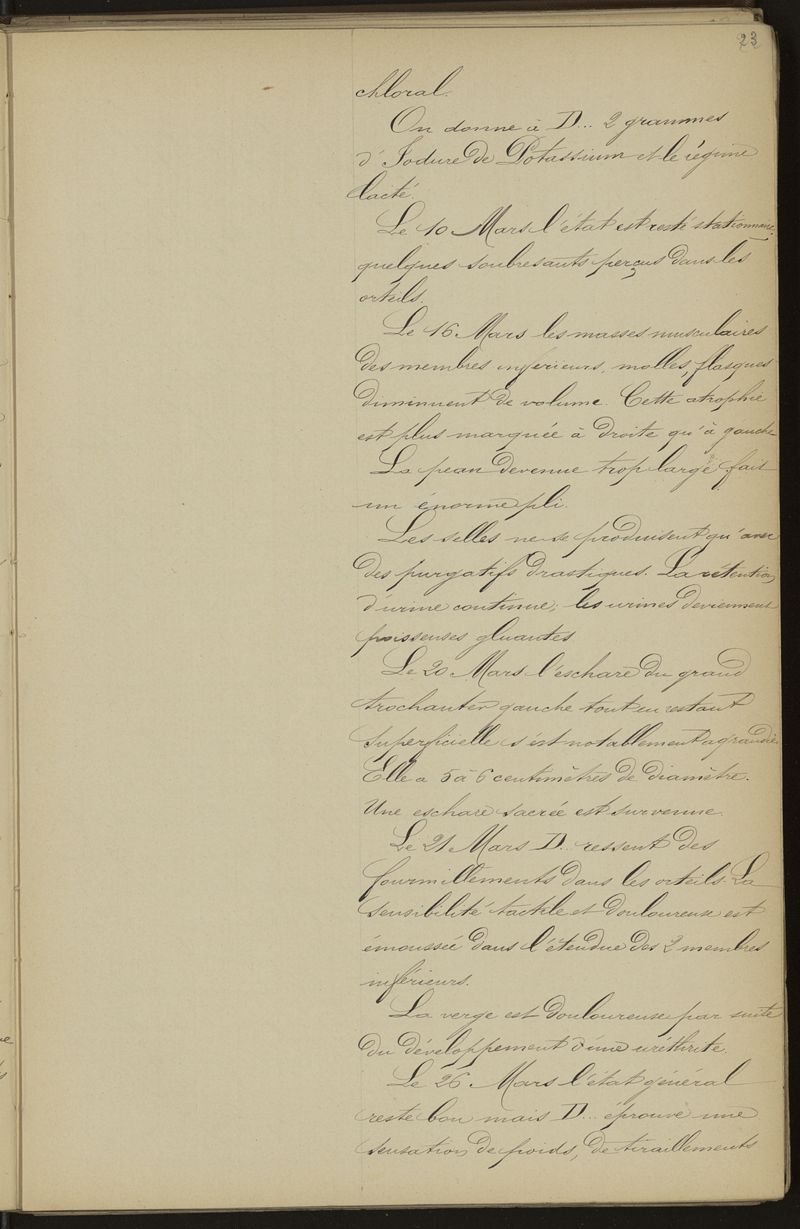 23
chloral.
On donne à D... 2 grammes
d'Iodure de Potassium et le régime
lacté.
Le 10 Mars l'état est resté stationnaire,
quelques soubresauts perçus dans les
orteils.
Le 16 Mars les masses musculaires
des membres inférieurs, molles, flasques
diminuent de volume. Cette atrophie
est plus marquée à droite qu'à gauche
La peau devenue trop large fait
un énorme pli.
Les selles ne se produisent qu'avec
des purgatifs drastiques. La rétention
d'urine continue; les urines deviennent
poisseuses gluantes
Le 20 Mars l'eschare du grand
trochanter gauche tout en restant
superficielle s'est notablement agrandie
Elle a 5 à 6 centimètres de diamètre.
Une eschare sacrée est survenue.
Le 21 Mars D... ressent des
fourmillements dans les orteils. La
sensibilité tactile et douloureuse est
émoussée dans l'étendue des 2 membres
inférieurs.
La verge est douloureuse par suite
du développement d'une uréthrite.
Le 26 Mars l'état général
reste bon mais D... éprouve une
sensation de poids, de tiraillements